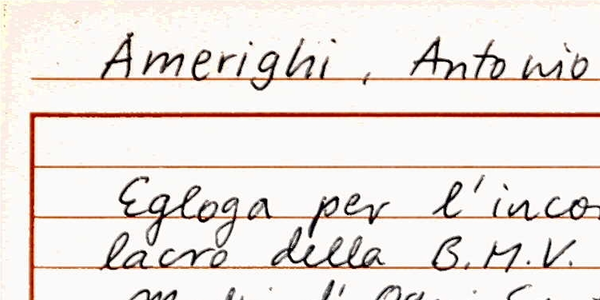 Amerighi, Antonio
Egloga per l'inco
lacro della B.M.V.